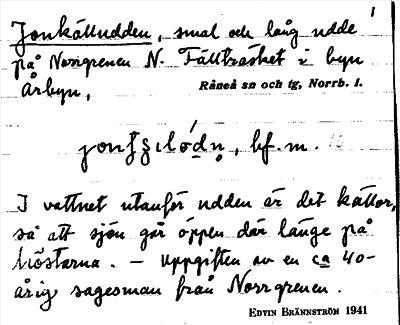 1
Jonkälludden, smal och låg udde
på Norrgrenen N. Fällträsket i byn
Årbyn,
Råneå sn och tg, Norrb. l.
bf. m.
I vattnet utanför udden är det källor,
så att sjön går öppen där länge på
höstarna. – Uppgiften av en ca 40-
årig sagesman från Norrgrenen.
EDVIN BRÄNNSTRÖM 1941